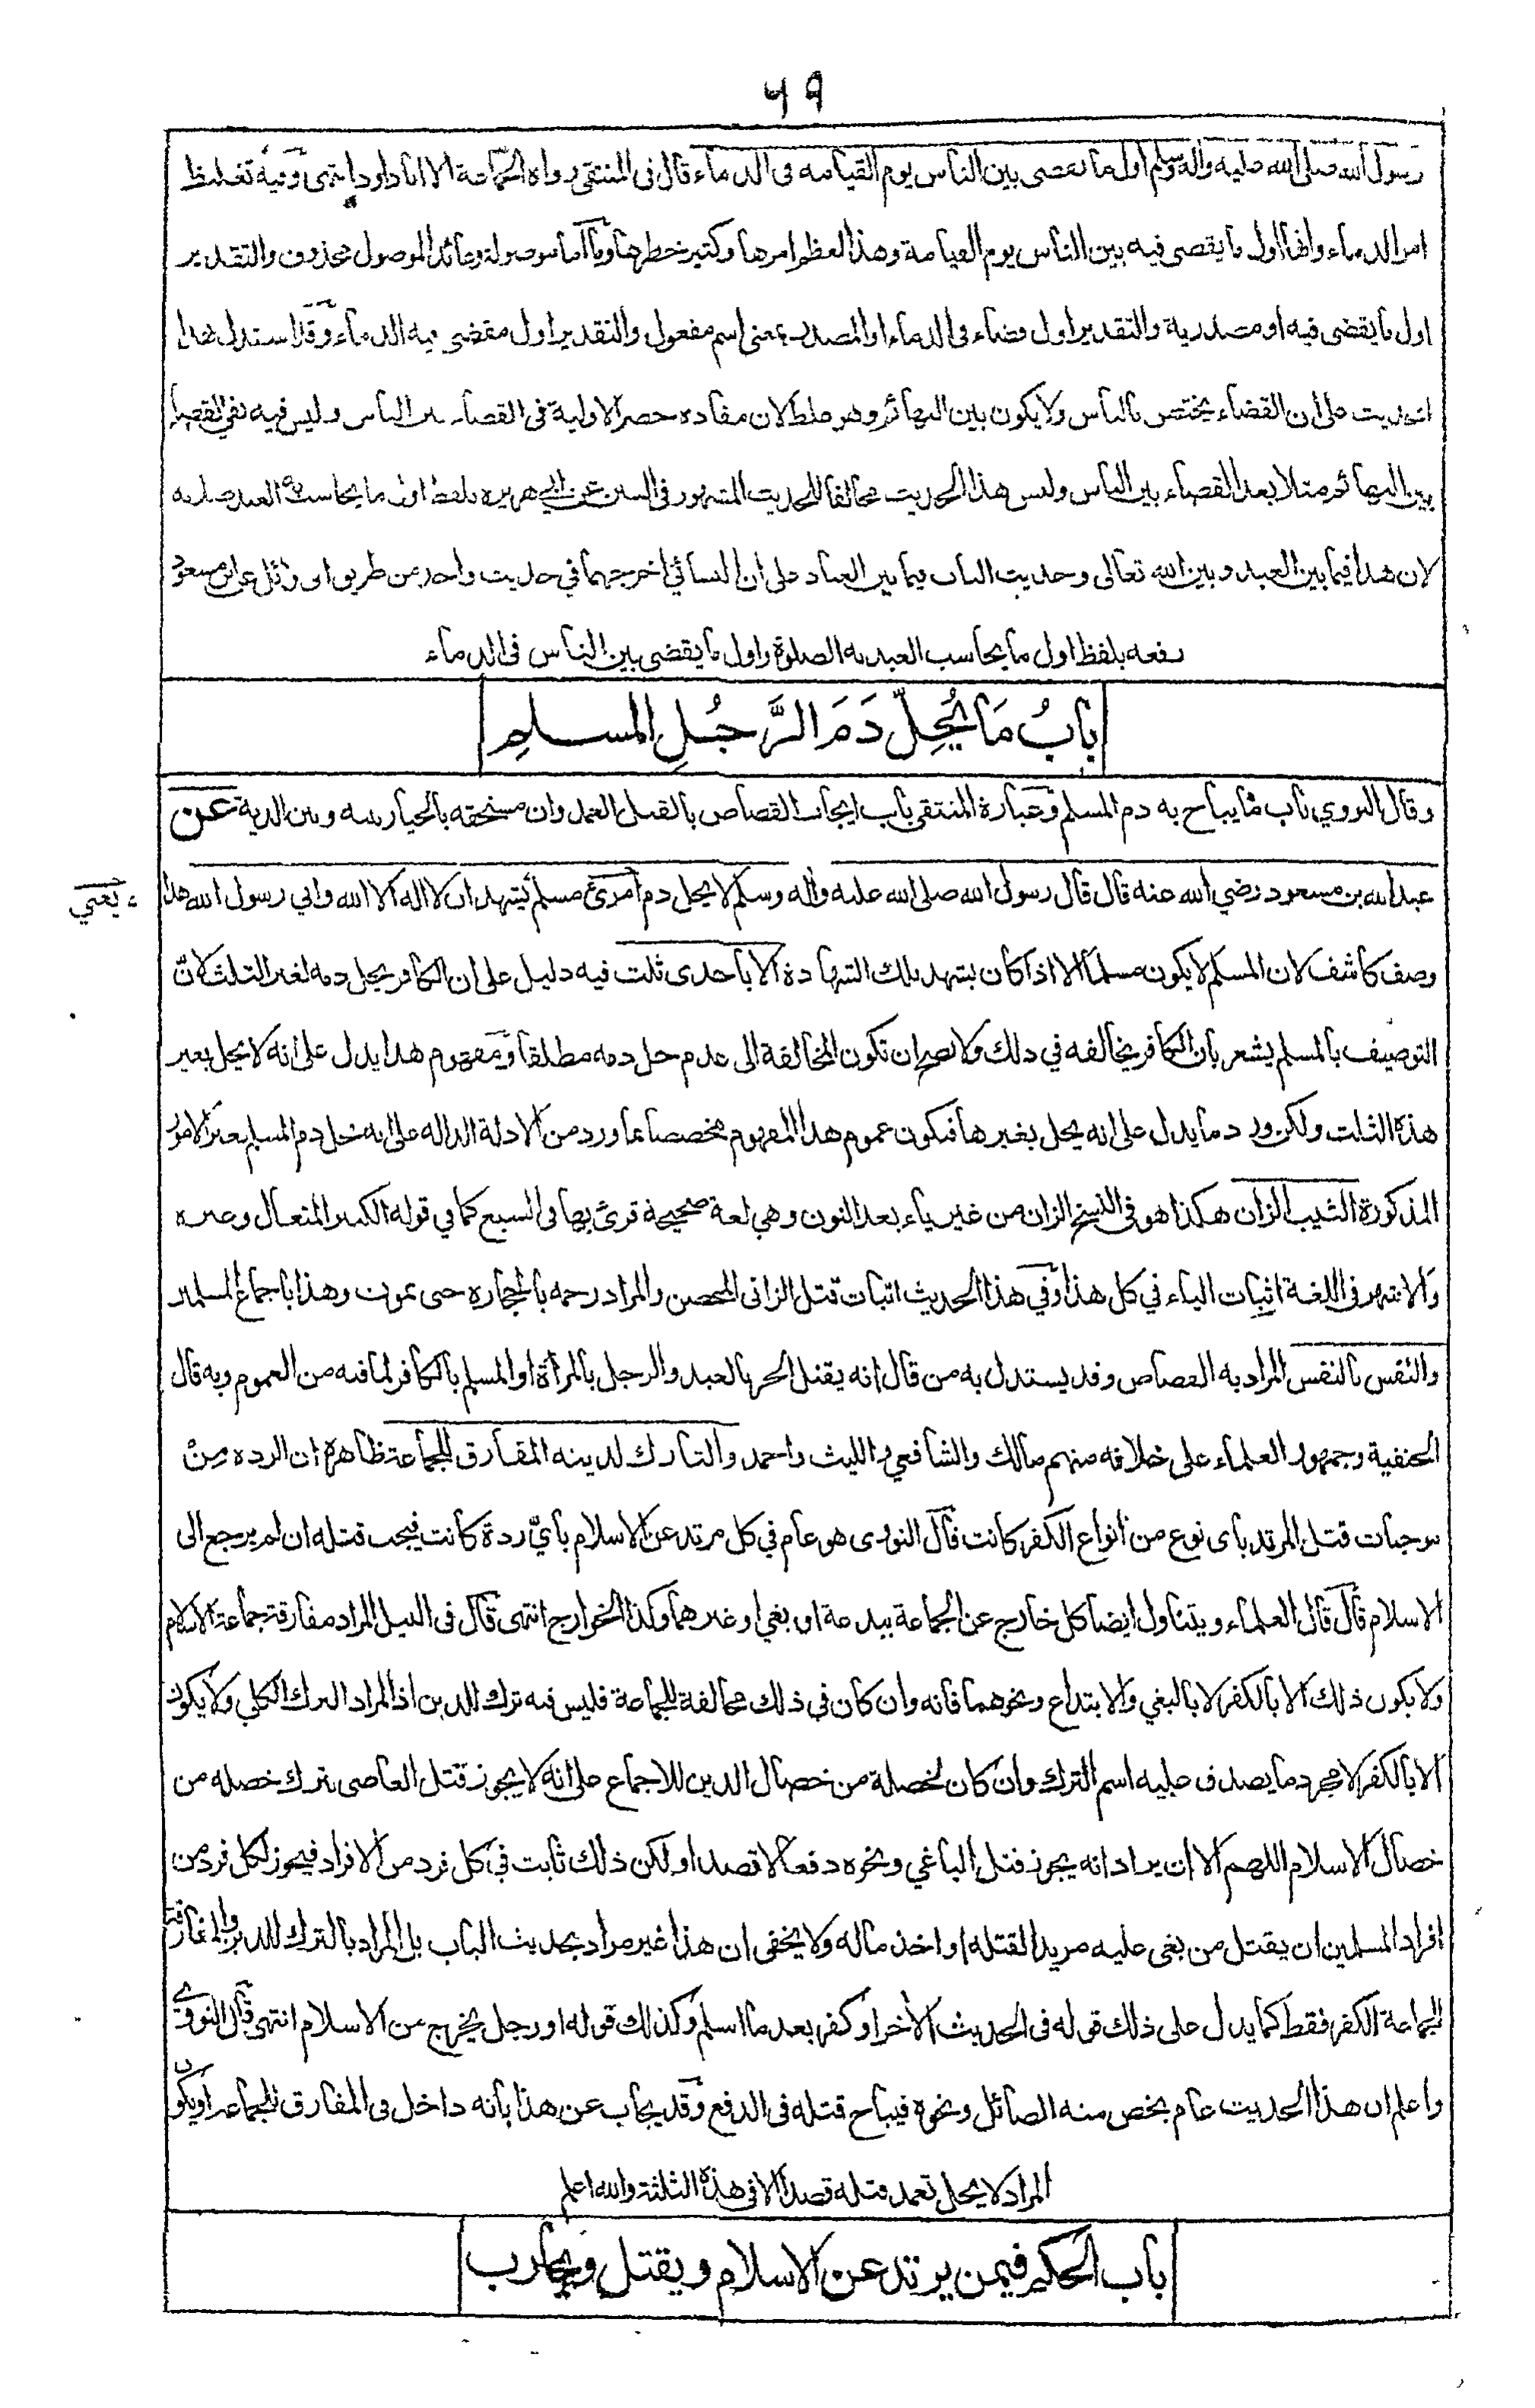 ٦٩
رسول الله صلى الله عليه واله وسلم اول ما يقضى بين الناس يوم القيامه فى الدماء قال فى المنتقى رواه الجماعة الا ابا داود انتهى وفيه تغليظ
امر الدماء وانها اول ما يقضى فيه بين الناس يوم القيامة وهذا لعظم امرها وكثير خطرها وما اما موصولة وعائد الموصول محذوف والتقدير
اول ما يقضى فيه او مصدرية والتقدير اول قضاء فى الدماء او المصدر بمعنى اسم مفعول والتقدير اول مقضى فيه الدماء وقد استدل بهذا
الحديث على ان القضاء يختص بالناس ولا يكون بين البهائم وهو غلط لان مفاده حصر الاولية فى القضاء بين الناس وليس فيه نفي القضاء
بين البهائم مثلا بعد القضاء بين الناس وليس هذا الحديث مخالفا للحديث المشهور فى السنن عن ابي هريره بلفظ اول ما يحاسب به العبد صلاته
لان هذا فيما بين العبد وبين الله تعالى وحديث الباب فيما بين العباد على ان النسائي اخرجهما في حديث واحد من طريق ابى وائل عن ابن مسعود
رفعه بلفظ اول ما يحاسب العبد به الصلوة واول ما يقضى بين الناس فى الدماء
بابُ مَا يُحِلّ دَمَ الرَّجُلِ المسلمِ
وقال النووي باب ما يباح به دم المسلم وعبارة المنتقى باب ايجاب القصاص بالقتل العمد وان مستحقه بالخيار بينه وبين الدية عن
عبد الله بن مسعود رضي الله عنه قال قال رسول الله صلى الله عليه واله وسلم لا يحل دم امرئ مسلم يشهد ان لا اله الا الله واني رسول الله هذا
، يعني
وصف كاشف لان المسلم لا يكون مسلما الا اذا كان يشهد تلك الشهادة الا باحدى ثلث فيه دليل على ان الكافر يحل دمه لغير الثلث لانّ
التوصيف بالمسلم يشعر بان الكافر يخالفه في ذلك ولا يصح ان تكون المخالفة الى عدم حل دمه مطلقا ومفهوم هذا يدل على انه لا يحل بغير
هذه الثلث ولكن ورد ما يدل على انه يحل بغيرها فيكون عموم هذا المفهوم مخصصا بما ورد من الادلة الداله على انه يحل دم المسلم بغير الامور
المذكورة الثيب الزان هكذا هو فى النسخ الزان من غير ياء بعد النون وهي لغة صحيحة قرئ بها فى السبع كما في قوله الكبير المتعال وغيره
والاشهر فى اللغة اثبات الياء في كل هذا وفي هذا الحديث اثبات قتل الزانى المحصن والمراد رجمه بالحجاره حتى يموت وهذا باجماع المسلمين
والنفس بالنفس المراد به القصاص وقد يستدل به من قال انه يقتل الحر بالعبد والرجل بالمرأة او المسلم بالكافر لما فيه من العموم وبه قال
الحنفية وجمهور العلماء على خلافه منهم مالك والشافعي والليث واحمد والتارك لدينه المفارق للجماعة ظاهره ان الرده مِنْ
موجبات قتل المرتد باى نوع من انواع الكفر كانت قال النووى هو عام في كل مرتد عن الاسلام بأيّ ردة كانت فيجب قتله ان لم يرجع الى
الاسلام قال قال العلماء ويتناول ايضا كل خارج عن الجماعة ببدعة او بغي او غيرهما وكذا الخوارج انتهى قال فى النيل المراد مفارقة جماعة الاسلام
ولا يكون ذلك الا بالكفر لا بالبغي والابتداع ونحوهما فانه وان كان في ذلك مخالفة للجماعة فليس فيه ترك للدين اذ المراد الترك الكلي ولا يكون
الا بالكفر لا مجرد ما يصدق عليه اسم الترك وان كان لخصلة من خصال الدين للاجماع على انه لا يجوز قتل العاصى بترك خصله من
خصال الاسلام اللهم الا ان يراد انه يجوز قتل الباغي ونحوه دفعا لا قصدا ولكن ذلك ثابت في كل فرد من الافراد فيجوز لكل فرد من
افراد المسلمين ان يقتل من بغى عليه مريدا لقتله او اخذ ماله ولا يخفى ان هذا غير مراد بحديث الباب بل المراد بالترك للدين والمفارقة
للجماعة الكفر فقط كما يدل على ذلك قوله فى الحديث الأخر او كفر بعد ما اسلم وكذلك قوله او رجل يخرج من الاسلام انتهى قال النووي
واعلم ان هذا الحديث عام يخص منه الصائل ونحوه فيباح قتله فى الدفع وقد يجاب عن هذا بانه داخل فى المفارق للجماعه او يكون
المراد لا يحل تعمد قتله قصدا الا فى هذه الثلثة والله اعلم
باب الحكم فيمن يرتد عن الاسلام ويقتل ويحارب